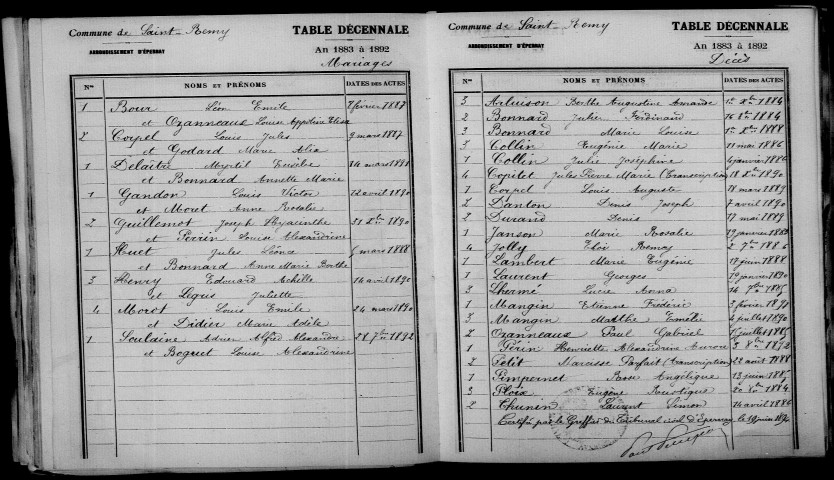 Commune de Saint-Remy
ARRONDISSEMENT D'ÉPERNAY
TABLE DÉCENNALE
An 1883 à 1892
Mariages
Nos NOMS ET PRÉNOMS DATES DES ACTES
1 Bour Léon Emile 7 février 1887
et Ozanneaux Louise Appoline Elisa
2 Corpel Louis Jules 9 mars 1887
et Godard Marie Alix
1 Delaître Myrtil Eusèbe 14 mars 1891
et Bonnard Annette Marie
1 Gandon Louis Victor 12 avril 1890
et Moret Anne Rosalie
2 Guillemot Joseph Hyacinthe 31 Xbre 1890
et Perrin Louise Alexandrine
1 Huet Jules Léonce 5 mars 1888
et Bonnard Anne Marie Berthe
3 Henry Edouard Achille 14 avril 1890
et Legus Juliette
4 Morot Louis Emile 24 mars 1890
et Didier Marie Adèle
1 Soulaine Alfred Alexandre 28 7bre 1892
et Boquet Louise Alexandrine
Commune de Saint-Remy
ARRONDISSEMENT D'ÉPERNAY
TABLE DÉCENNALE
An 1883 à 1892
Décès
Nos NOMS ET PRÉNOMS DATES DES ACTES
3 Arluison Berthe Augustine Amande 1er Xbre 1884
2 Bonnard Julien Ferdinand 14 8bre 1884
3 Bonnard Marie Louise 1er Xbre 1888
3 Collin Eugénie Marie 11 mai 1886
1 Collin Julie Joséphine 4 janvier 1886
4 Copitet Jules Pierre Marie (Transcription) 18 Xbre 1890
1 Corpel Louis Auguste 18 mars 1889
2 Danton Denis Joseph 7 avril 1890
2 Durand Denis 17 mai 1889
1 Janson Marie Rosalie 19 janvier 1883
4 Jolly Eloi Remy 2 7bre 1886
1 Lambert Marie Eugénie 17 juin 1888
1 Laurent Georges 19 janvier 1890
3 Lhermé Lucie Anna 14 7bre 1885
1 Mangin Etienne Frédéric 3 février 1892
2 Mangin Marthe Emélie 4 juillet 1890
2 Ozanneaux Paul Gabriel 15 juillet 1885
Perin Henriette Alexandrine Aurore 3 Xbre 1892
2 Petit Narcisse Parfait (Transcription) 22 août 1888
1 Pimpernet Rose Angélique 13 juin 1885
3 Ploix Eugène Rustique 20 8bre 1884
2 Thunin Laurent Simon 14 avril 1886
Certifié par le Greffier du Tribunal civil d'Epernay le 19 juin 1894